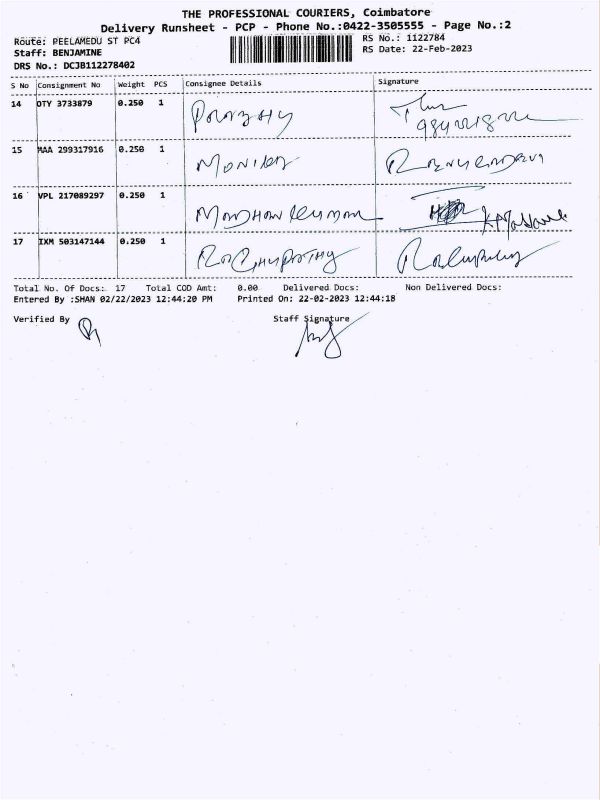 THE PROFESSIONAL COURIERS, Coimbatore
Delivery Runsheet - PCP - Phone No.:0422-3505555 - Page No.:2
Route: PEELAMEDU ST PC4
RS No.: 1122784
Staff: BENJAMINE
RS Date: 22-Feb-2023
DRS No.: DCJB112278402
S No Consignment No Weight PCS Consignee Details Signature
14 OTY 3733879 0.250 1
15 MAA 299317916 0.250 1
16 VPL 217089297 0.250 1
17 IXM 503147144 0.250 1
Total No. Of Docs: 17 Total COD Amt: 0.00 Delivered Docs: Non Delivered Docs:
Entered By :SHAN 02/22/2023 12:44:20 PM Printed On: 22-02-2023 12:44:18
Verified By Staff Signature